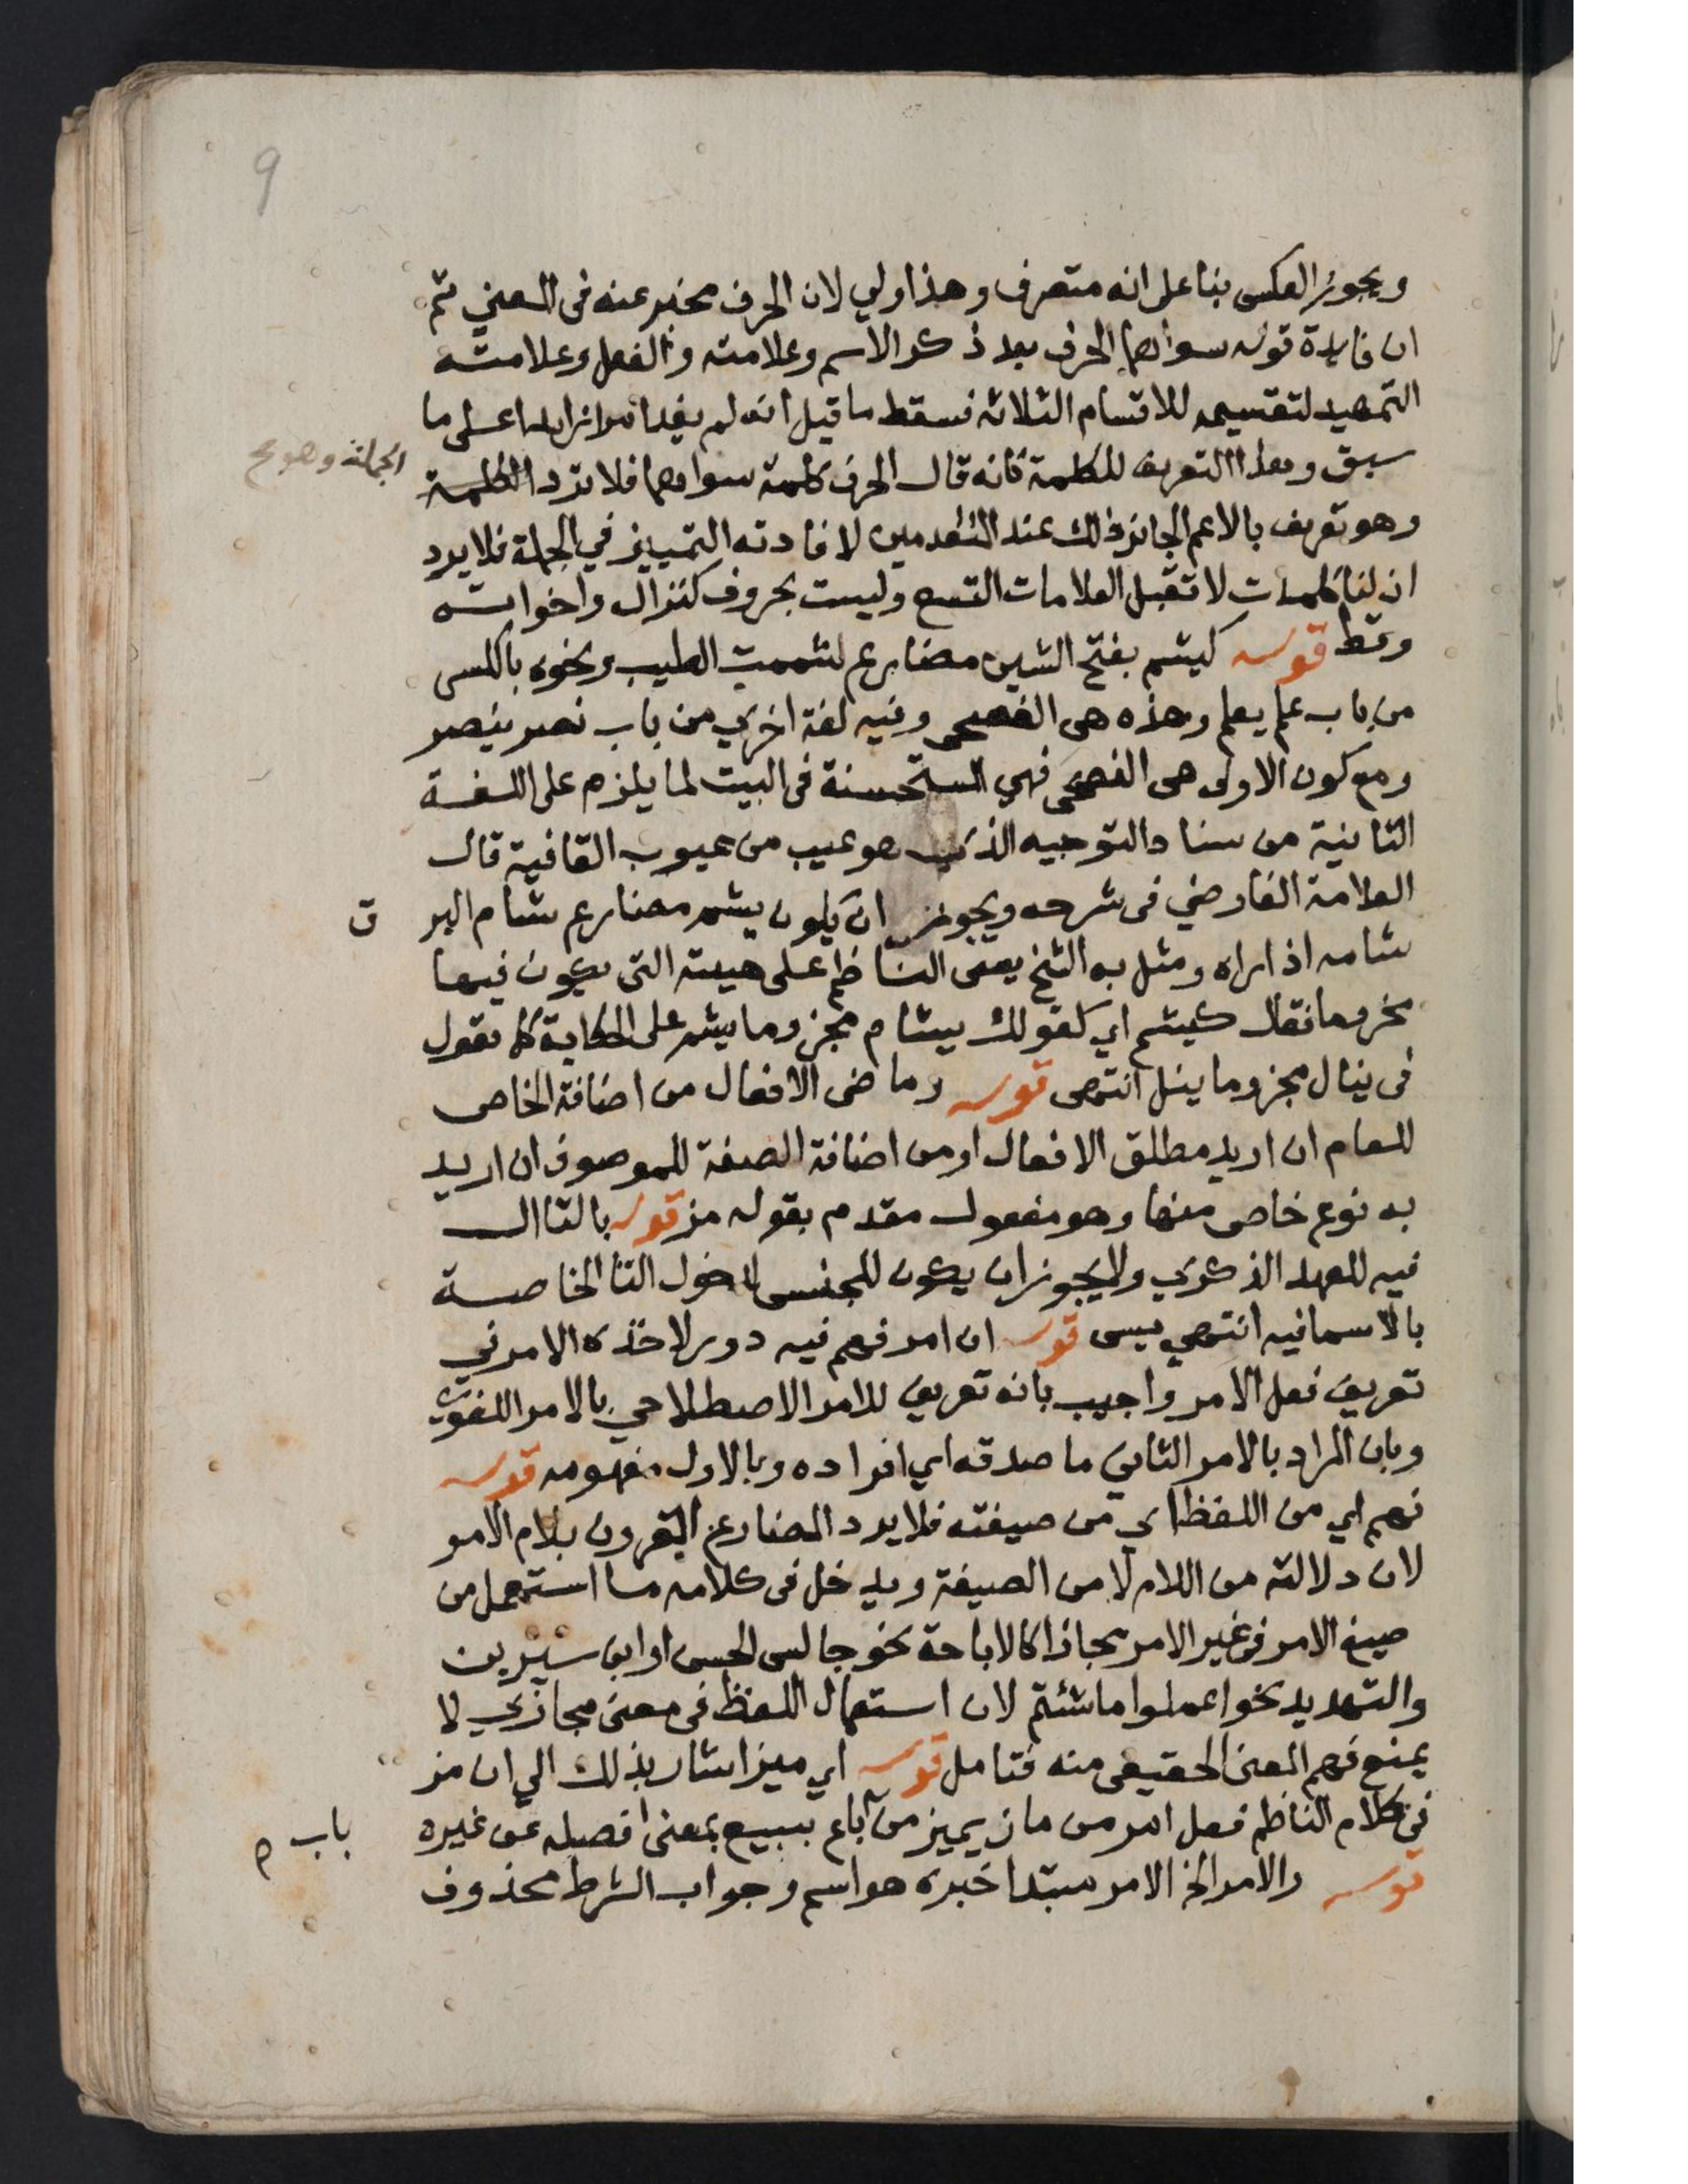 9
ويجوز العكس بنا على انه متصرف وهذا اولي لان الحرف مخبر عنه فى المعني ثم
ان فايدة قوله سواهما الحرف بعد ذكر الاسم وعلامته والفعل وعلامته
التمهيد لتقسيمه للاقسام الثلاثه فسقط ما قيل انه لم يفد امرا زايدا على ما
سبق وهذا التعريف للكلمة فانه قال الحرف كلمة سواهما فلا ترد الكلمة
الجملة وهو صح
وهو تعريف بالاعم الجائز ذلك عند المتقدمين لافادته التمييز في الجملة فلا يرد
ان لنا كلمات لا تقبل العلامات التسع وليست بحروف كنزال واخواته
وقط قوله كيشم بفتح الشين مضارع لشممت الطيب ونحوه بالكسر
من باب علم يعلم وهذه هى الفصحى وفيه لغة اخري من باب نصر ينصر
ومع كون الاولى هى الفصحى فهي المستحسنة فى البيت لما يلزم على اللغة
الثانية من سناد التوجيه الذي هو عيب من عيوب القافية قال
العلامة الفارضي فى شرحه ويجوز ان يكون يشم مضارع شام البرق
شامه اذا راه ومثل به الشيخ يعنى الناظم على هيئته التى يكون فيها
مجزوما فقال كيشم اي كقولك يشام مجزوما يشم على الحكاية كما تقول
فى ينال مجزوما ينل انتهى قوله وماضى الافعال من اضافة الخاص
للعام ان اريد مطلق الافعال او من اضافة الصفة للموصوف ان اريد
به نوع خاص منها وهو مفعول مقدم بقوله مز قوله بالتا ال
فيه للعهد الذكري ولا يجوز ان يكون للجنس لدخول التا الخاصة
بالاسما فيه انتهي يس قوله ان امر فهم فيه دور لاخذه الامر في
تعريف فعل الامر واجيب بانه تعريف للامر الاصطلاحي بالامر اللغوي
وبان المراد بالامر الثاني ما صدقه اي افراده وبالاول مفهومه قوله
فهم اي من اللفظ اي من صيغته فلا يرد المضارع المقرون بلام الامر
لان دلالته من اللام لا من الصيغة ويدخل فى كلامه ما استعمل من
صيغ الامر فى غير الامر مجازا كالاباحة نحو جالس الحسن او ابن سيرين
والتهديد نحو اعملوا ما شئتم لان استعمال اللفظ فى معنى مجازي لا
يمنع فهم المعنى الحقيقى منه فتامل قوله اي ميز اشار بذلك الي ان مز
فى كلام الناظم فعل امر من ماز يميز من باع يبيع بمعنى افصله عن غيره
باب
قوله والامر الخ الامر مبتدا خبره هو اسم وجواب الشرط محذوف